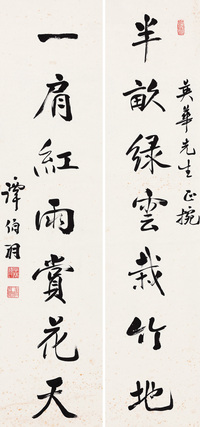 英華先生正捥
半畝綠雲栽竹地
一肩紅雨賞花天
譚伯羽